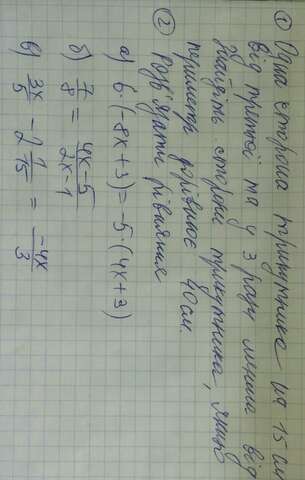 ① Одна сторона трикутника на 15 см
від третьої та у 3 рази менша від
Знайдіть сторони трикутника, якщо
периметр дорівнює 40 см.
② Розв'язати рівняння
а) 6·(-8x+3)=-5·(4x+3)
б) 7/8 = 4x-5/2x-1
в) 3x/5 - 2 1/15 = -4x/3